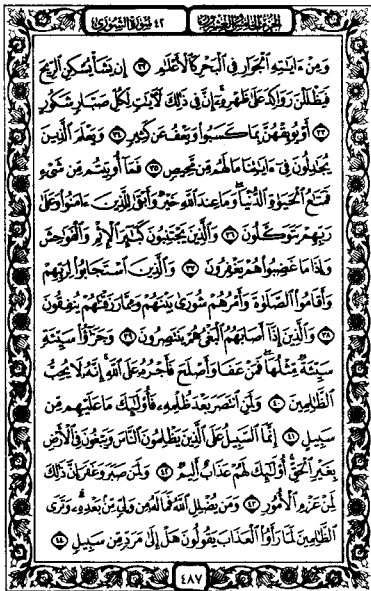 الجزء الخامس والعشرون ٤٢ سورة الشورى
وَمِنْ ءَايَٰتِهِ ٱلْجَوَارِ فِى ٱلْبَحْرِ كَٱلْأَعْلَٰمِ ٣٢ إِن يَشَأْ يُسْكِنِ ٱلرِّيحَ
فَيَظْلَلْنَ رَوَاكِدَ عَلَىٰ ظَهْرِهِۦٓ ۚ إِنَّ فِى ذَٰلِكَ لَءَايَٰتٍ لِّكُلِّ صَبَّارٍ شَكُورٍ
٣٣ أَوْ يُوبِقْهُنَّ بِمَا كَسَبُوا۟ وَيَعْفُ عَن كَثِيرٍ ٣٤ وَيَعْلَمَ ٱلَّذِينَ
يُجَٰدِلُونَ فِىٓ ءَايَٰتِنَا مَا لَهُم مِّن مَّحِيصٍ ٣٥ فَمَآ أُوتِيتُم مِّن شَىْءٍ
فَمَتَٰعُ ٱلْحَيَوٰةِ ٱلدُّنْيَا ۖ وَمَا عِندَ ٱللَّهِ خَيْرٌ وَأَبْقَىٰ لِلَّذِينَ ءَامَنُوا۟ وَعَلَىٰ
رَبِّهِمْ يَتَوَكَّلُونَ ٣٦ وَٱلَّذِينَ يَجْتَنِبُونَ كَبَٰٓئِرَ ٱلْإِثْمِ وَٱلْفَوَٰحِشَ
وَإِذَا مَا غَضِبُوا۟ هُمْ يَغْفِرُونَ ٣٧ وَٱلَّذِينَ ٱسْتَجَابُوا۟ لِرَبِّهِمْ
وَأَقَامُوا۟ ٱلصَّلَوٰةَ وَأَمْرُهُمْ شُورَىٰ بَيْنَهُمْ وَمِمَّا رَزَقْنَٰهُمْ يُنفِقُونَ
٣٨ وَٱلَّذِينَ إِذَآ أَصَابَهُمُ ٱلْبَغْىُ هُمْ يَنتَصِرُونَ ٣٩ وَجَزَٰٓؤُا۟ سَيِّئَةٍ
سَيِّئَةٌ مِّثْلُهَا ۖ فَمَنْ عَفَا وَأَصْلَحَ فَأَجْرُهُۥ عَلَى ٱللَّهِ ۚ إِنَّهُۥ لَا يُحِبُّ
ٱلظَّٰلِمِينَ ٤٠ وَلَمَنِ ٱنتَصَرَ بَعْدَ ظُلْمِهِۦ فَأُو۟لَٰٓئِكَ مَا عَلَيْهِم مِّن
سَبِيلٍ ٤١ إِنَّمَا ٱلسَّبِيلُ عَلَى ٱلَّذِينَ يَظْلِمُونَ ٱلنَّاسَ وَيَبْغُونَ فِى ٱلْأَرْضِ
بِغَيْرِ ٱلْحَقِّ ۚ أُو۟لَٰٓئِكَ لَهُمْ عَذَابٌ أَلِيمٌ ٤٢ وَلَمَن صَبَرَ وَغَفَرَ إِنَّ ذَٰلِكَ
لَمِنْ عَزْمِ ٱلْأُمُورِ ٤٣ وَمَن يُضْلِلِ ٱللَّهُ فَمَا لَهُۥ مِن وَلِىٍّ مِّنۢ بَعْدِهِۦ ۗ وَتَرَى
ٱلظَّٰلِمِينَ لَمَّا رَأَوُا۟ ٱلْعَذَابَ يَقُولُونَ هَلْ إِلَىٰ مَرَدٍّ مِّن سَبِيلٍ ٤٤
٤٨٧